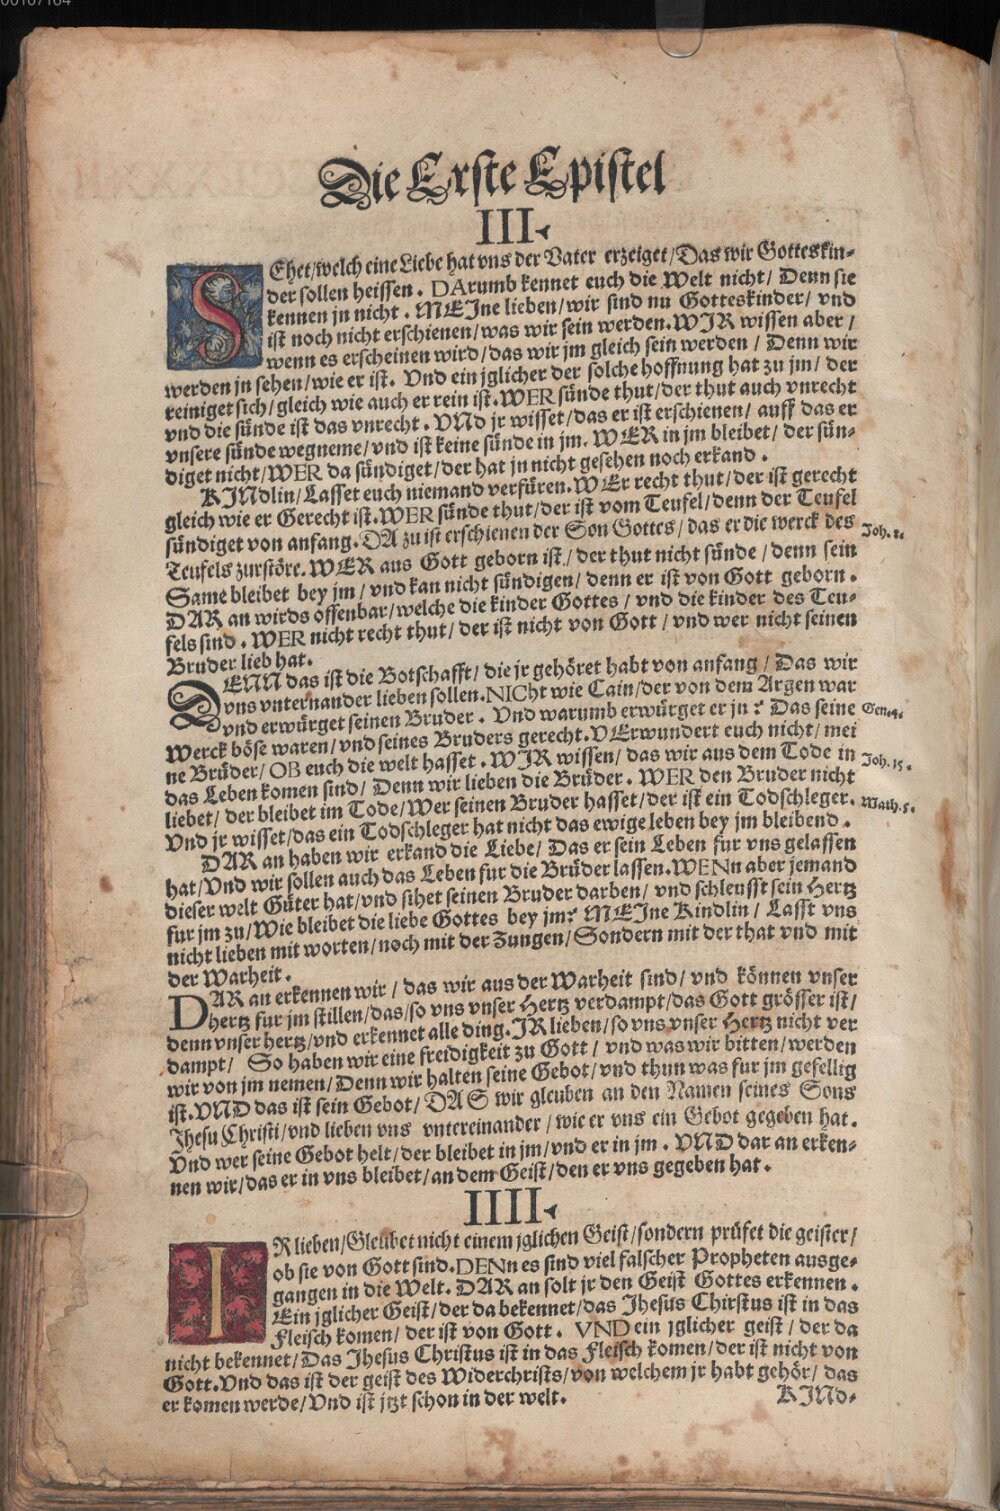 00107164
Die Erste Epistel
III.
SEhet/welch eine Liebe hat vns der Vater erzeiget/Das wir Gotteskin-
der sollen heissen. DArumb kennet euch die Welt nicht/ Denn sie
kennen jn nicht. MEJne lieben/wir sind nu Gotteskinder/ vnd
ist noch nicht erschienen/was wir sein werden. WJR wissen aber/
wenn es erscheinen wird/das wir jm gleich sein werden/ Denn wir
werden jn sehen/wie er ist. Vnd ein jglicher der solche hoffnung hat zu jm/ der
reiniget sich/gleich wie auch er rein ist. WER sünde thut/der thut auch vnrecht
vnd die sünde ist das vnrecht. VND jr wisset/das er ist erschienen/ auff das er
vnsere sünde wegneme/vnd ist keine sünde in jm. WER in jm bleibet/ der sün-
diget nicht/WER da sündiget/der hat jn nicht gesehen noch erkand.
KINdlin/Lasset euch niemand verfüren. WEr recht thut/der ist gerecht
gleich wie er Gerecht ist. WER sünde thut/der ist vom Teufel/denn der Teufel
sündiget von anfang. DA zu ist erschienen der Son Gottes/ das er die werck des
Joh. 8.
Teufels zurstöre. WER aus Gott geborn ist/ der thut nicht sünde/ denn sein
Same bleibet bey jm/ vnd kan nicht sündigen/ denn er ist von Gott geborn.
DAR an wirds offenbar/welche die kinder Gottes/ vnd die kinder des Teu-
fels sind. WER nicht recht thut/ der ist nicht von Gott/ vnd wer nicht seinen
Bruder lieb hat.
DENN das ist die Botschafft/ die jr gehöret habt von anfang/ Das wir
vns vnternander lieben sollen. NICht wie Cain/der von dem Argen war
vnd erwürget seinen Bruder. Vnd warumb erwürget er jn? Das seine
Gen. 4.
Werck böse waren/vnd seines Bruders gerecht. VErwundert euch nicht/ mei
ne Brüder/ OB euch die welt hasset. WJR wissen/ das wir aus dem Tode in
Joh. 15.
das Leben komen sind/ Denn wir lieben die Brüder. WER den Bruder nicht
liebet/ der bleibet im Tode/Wer seinen Bruder hasset/der ist ein Todschleger.
Math. 5.
Vnd jr wisset/das ein Todschleger hat nicht das ewige leben bey jm bleibend.
DAR an haben wir erkand die Liebe/ Das er sein Leben fur vns gelassen
hat/Vnd wir sollen auch das Leben fur die Brüder lassen. WENn aber jemand
dieser welt Güter hat/vnd sihet seinen Bruder darben/ vnd schleusst sein Hertz
fur jm zu/Wie bleibet die liebe Gottes bey jm? MEJne Kindlin/ Lasst vns
nicht lieben mit worten/noch mit der Zungen/Sondern mit der that vnd mit
der Warheit.
DAR an erkennen wir/ das wir aus der Warheit sind/ vnd können vnser
hertz fur jm stillen/das/so vns vnser Hertz verdampt/das Gott grösser ist/
denn vnser hertz/vnd erkennet alle ding. JR lieben/so vns vnser Hertz nicht ver
dampt/ So haben wir eine freidigkeit zu Gott/ vnd was wir bitten/werden
wir von jm nemen/Denn wir halten seine Gebot/vnd thun was fur jm gefellig
ist. VND das ist sein Gebot/ DAS wir gleuben an den Namen seines Sons
Jhesu Christi/vnd lieben vns vntereinander/wie er vns ein Gebot gegeben hat.
Vnd wer seine Gebot helt/der bleibet in jm/vnd er in jm. VND dar an erken-
nen wir/das er in vns bleibet/an dem Geist/den er vns gegeben hat.
IIII.
IR lieben/Gleubet nicht einem jglichen Geist/sondern prüfet die geister/
ob sie von Gott sind. DENn es sind viel falscher Propheten ausge-
gangen in die Welt. DAR an solt jr den Geist Gottes erkennen.
Ein jglicher Geist/der da bekennet/das Jhesus Chirstus ist in das
Fleisch komen/ der ist von Gott. VND ein jglicher geist/ der da
nicht bekennet/Das Jhesus Christus ist in das Fleisch komen/der ist nicht von
Gott. Vnd das ist der geist des Widerchrists/von welchem jr habt gehör/ das
er komen werde/Vnd ist jtzt schon in der welt.
KJNd-